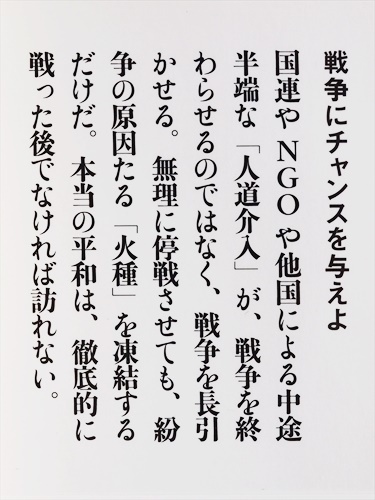 戦争にチャンスを与えよ
国連やNGOや他国による中途
半端な「人道介入」が、戦争を終
わらせるのではなく、戦争を長引
かせる。無理に停戦させても、紛
争の原因たる「火種」を凍結する
だけだ。本当の平和は、徹底的に
戦った後でなければ訪れない。